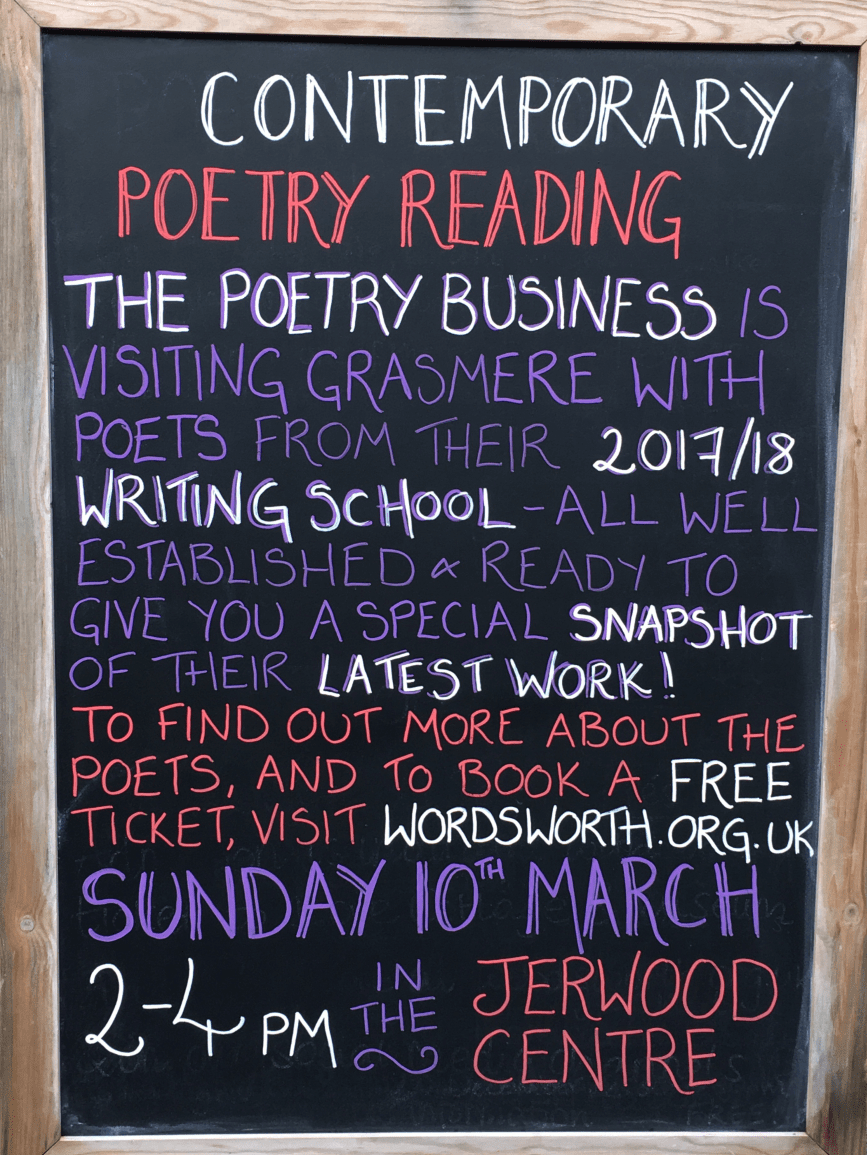 CONTEMPORARY
POETRY READING
THE POETRY BUSINESS IS
VISITING GRASMERE WITH
POETS FROM THEIR 2017/18
WRITING SCHOOL - ALL WELL
ESTABLISHED & READY TO
GIVE YOU A SPECIAL SNAPSHOT
OF THEIR LATEST WORK!
TO FIND OUT MORE ABOUT THE
POETS, AND TO BOOK A FREE
TICKET, VISIT WORDSWORTH.ORG.UK
SUNDAY 10TH MARCH
2-4 PM IN THE JERWOOD
CENTRE